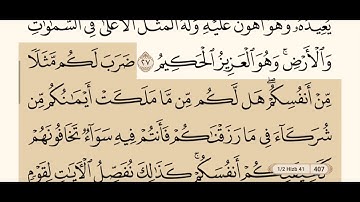 يُعِيدُهُۥ وَهُوَ أَهْوَنُ عَلَيْهِ وَلَهُ ٱلْمَثَلُ ٱلْأَعْلَىٰ فِى ٱلسَّمَٰوَٰتِ
وَٱلْأَرْضِ ۚ وَهُوَ ٱلْعَزِيزُ ٱلْحَكِيمُ ٢٧ ضَرَبَ لَكُم مَّثَلًا
مِّنْ أَنفُسِكُمْ ۖ هَل لَّكُم مِّن مَّا مَلَكَتْ أَيْمَٰنُكُم مِّن
شُرَكَآءَ فِى مَا رَزَقْنَٰكُمْ فَأَنتُمْ فِيهِ سَوَآءٌ تَخَافُونَهُمْ
كَخِيفَتِكُمْ أَنفُسَكُمْ ۚ كَذَٰلِكَ نُفَصِّلُ ٱلْـَٔايَٰتِ لِقَوْمٍ
1/2 Hizb 41 407